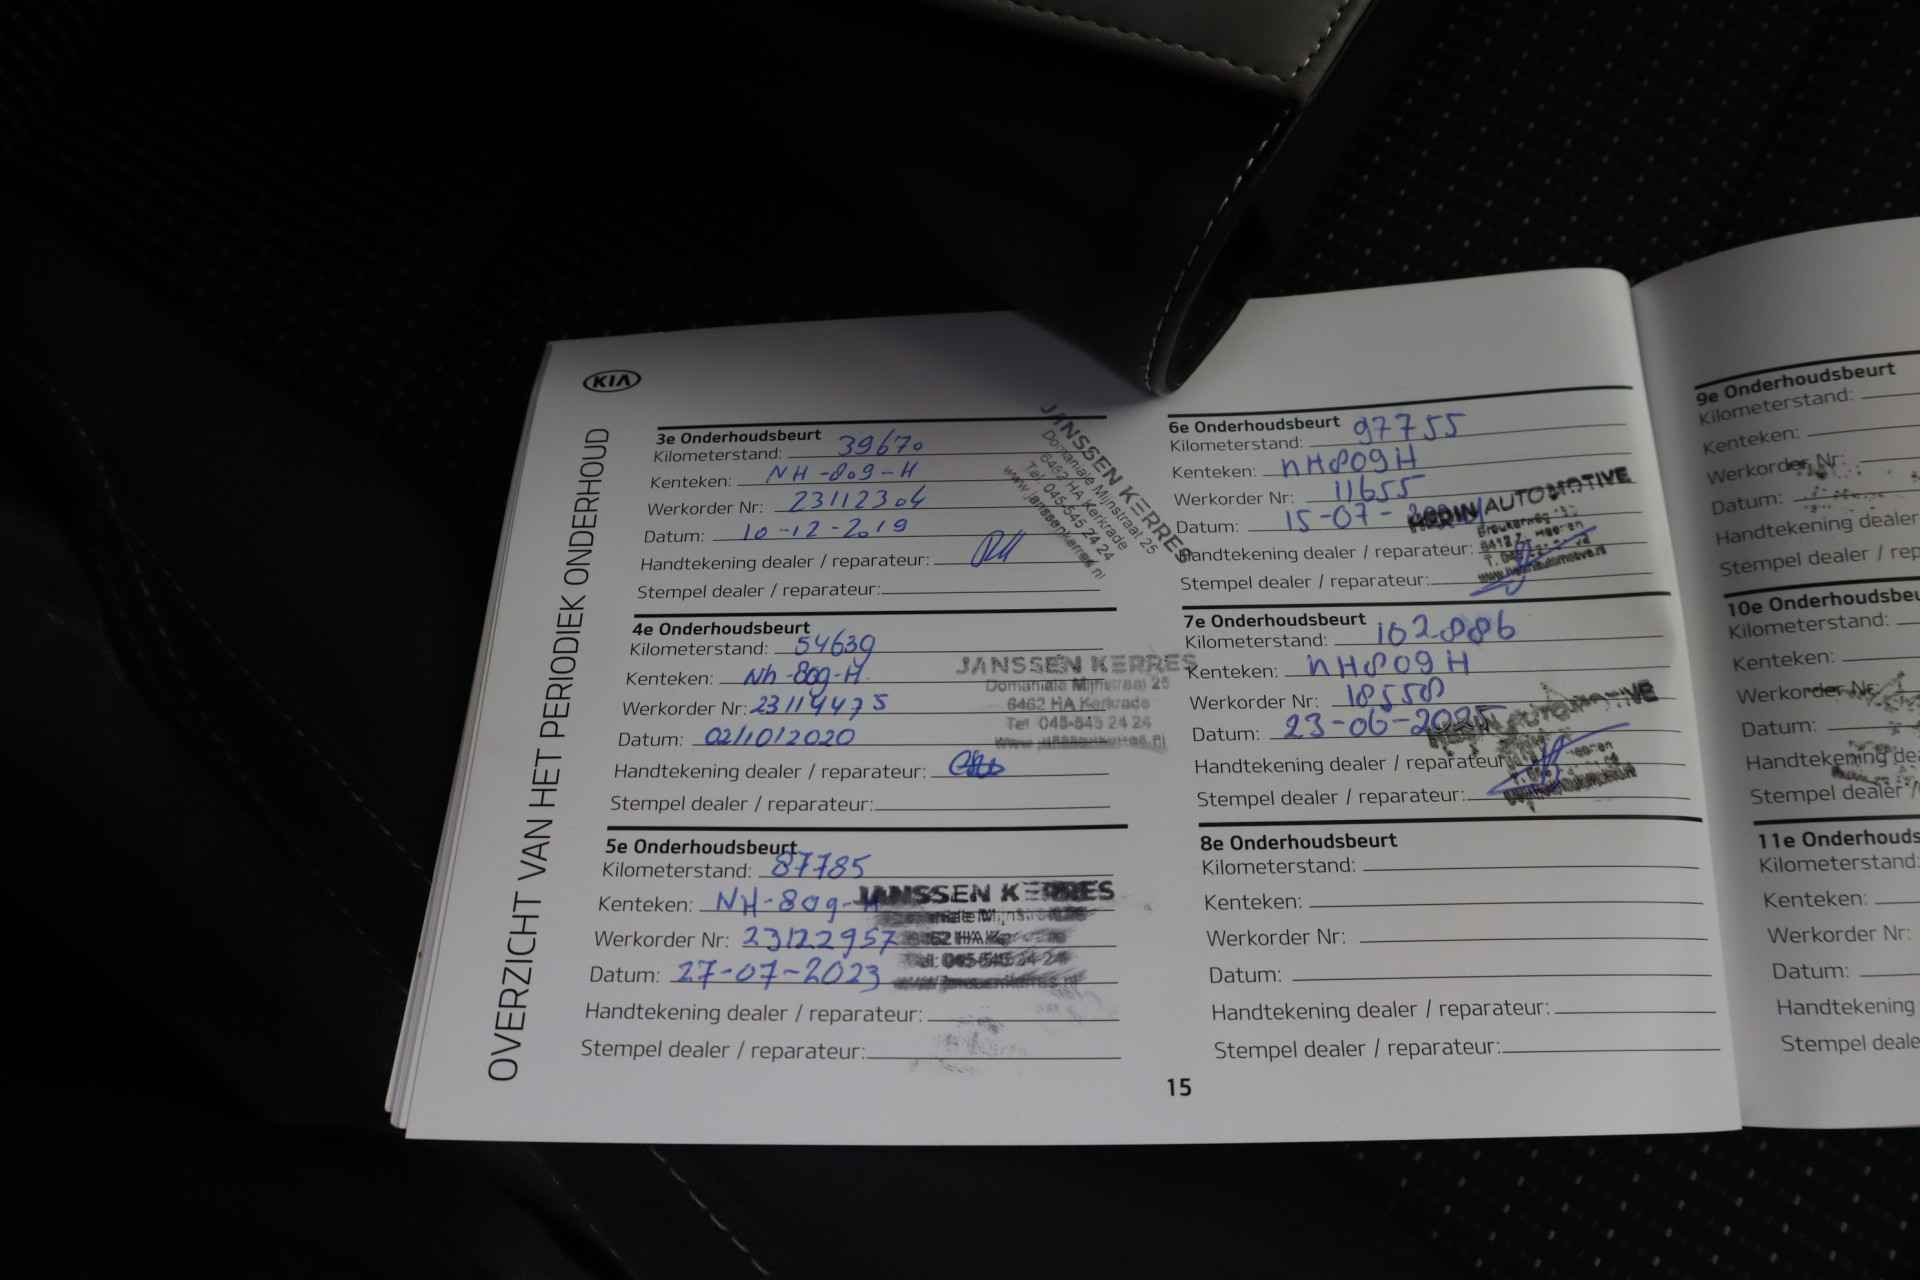 KIA
OVERZICHT VAN HET PERIODIEK ONDERHOUD
3e Onderhoudsbeurt
Kilometerstand: 39670
Kenteken: NH-809-H
Werkorder Nr: 23112304
Datum: 10-12-2019
Handtekening dealer / reparateur:
Stempel dealer / reparateur:
JANSSEN KERRES
Domaniale Mijnstraat 25
6462 HA Kerkrade
Tel. 045-545 24 24
www.janssenkerres.nl
4e Onderhoudsbeurt
Kilometerstand: 54639
Kenteken: Nh-809-H
Werkorder Nr: 23114475
Datum: 02/10/2020
Handtekening dealer / reparateur:
Stempel dealer / reparateur:
JANSSEN KERRES
Domaniale Mijnstraat 25
6462 HA Kerkrade
Tel 045-545 24 24
www.janssenkerres.nl
5e Onderhoudsbeurt
Kilometerstand: 87785
Kenteken: NH-809-H
Werkorder Nr: 23122957
Datum: 27-07-2023
Handtekening dealer / reparateur:
Stempel dealer / reparateur:
JANSSEN KERRES
6462 HA
Tel: 045-545 24 24
6e Onderhoudsbeurt
Kilometerstand: 97755
Kenteken: nH809H
Werkorder Nr: 11655
Datum: 15-07-
Handtekening dealer / reparateur:
Stempel dealer / reparateur:
HEDIN AUTOMOTIVE
Heerlen
www.hedinautomotive.nl
7e Onderhoudsbeurt
Kilometerstand: 102886
Kenteken: nH809H
Werkorder Nr: 18558
Datum: 23-06-2025
Handtekening dealer / reparateur
Stempel dealer / reparateur:
AUTOMOTIVE
8e Onderhoudsbeurt
Kilometerstand:
Kenteken:
Werkorder Nr:
Datum:
Handtekening dealer / reparateur:
Stempel dealer / reparateur:
15
9e Onderhoudsbeurt
Kilometerstand:
Kenteken:
Werkorder Nr:
Datum:
Handtekening dealer
Stempel dealer / rep
10e Onderhoudsbeu
Kilometerstand:
Kenteken:
Werkorder Nr:
Datum:
Handtekening dea
Stempel dealer /
11e Onderhouds
Kilometerstand:
Kenteken:
Werkorder Nr:
Datum:
Handtekening
Stempel deale